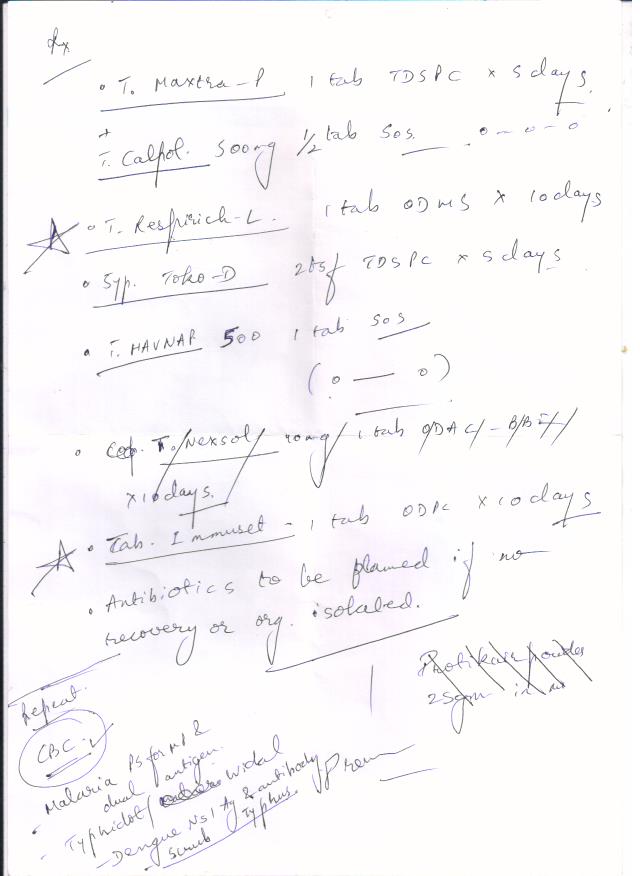 Rx
• T. Maxtra-P 1 tab TDSPC x 5 days.
+
T. Calpol. 500mg 1/2 tab SOS. o - o - o
• T. Respirich-L. 1 tab ODMS x 10 days
• Syp. Toko-D 2tsf TDSPC x 5 days
• T. HAVNAP 500 1 tab SOS
(o — o)
• T. Nexsol 1 tab ODAC - B/BF
x 10 days.
• Tab. Immuset - 1 tab ODPC x 10 days
• Antibiotics to be planned if no
recovery or org. isolated.
powder
25gm in
Repeat.
CBC
• Malaria PS for MP &
dual antigen.
• Typhidot/ widal
- Dengue NS1 Ag & antibody
- Scrub Typhus.